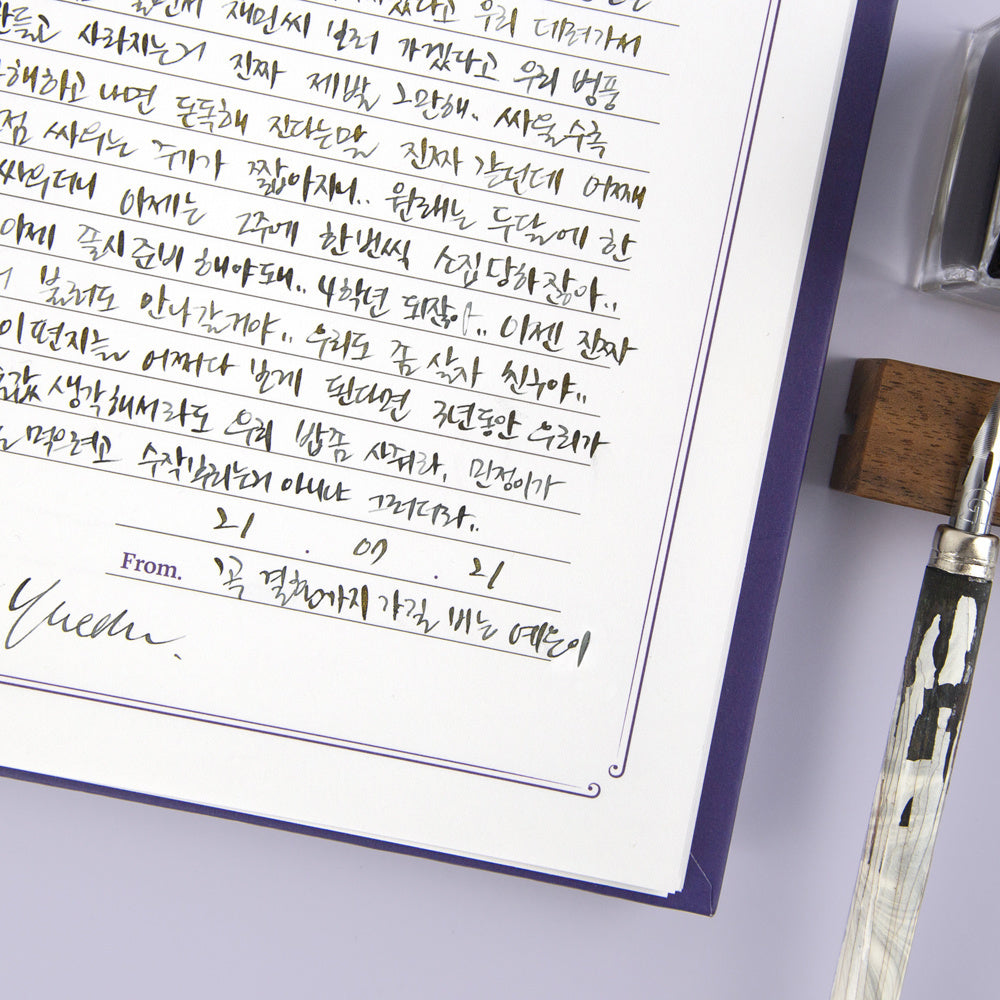 겠다고 우리 데려가서
만들고 사라지는거 진짜 제발 그만해. 싸울수록
해하고 나면 돈독해 진다는말 진짜 같던데 어째
점 싸우는 주기가 짧아지니.. 원래는 두달에 한
싸우더니 이제는 2주에 한번씩 소집당하잖아..
이제 플시준비 해야돼.. 4학년 되잖아.. 이젠 진짜
불러도 안나갈거야.. 우리도 좀 살자 친구야..
이 편지를 어쩌다 보게 된다면 3년동안 우리가
생각해서라도 우리 밥좀 사줘라, 민정이가
먹으려고 수작부리는거 아니냐 그러더라..
21 . 07 . 21
From. 꼭 결혼까지 가길 비는 예은이